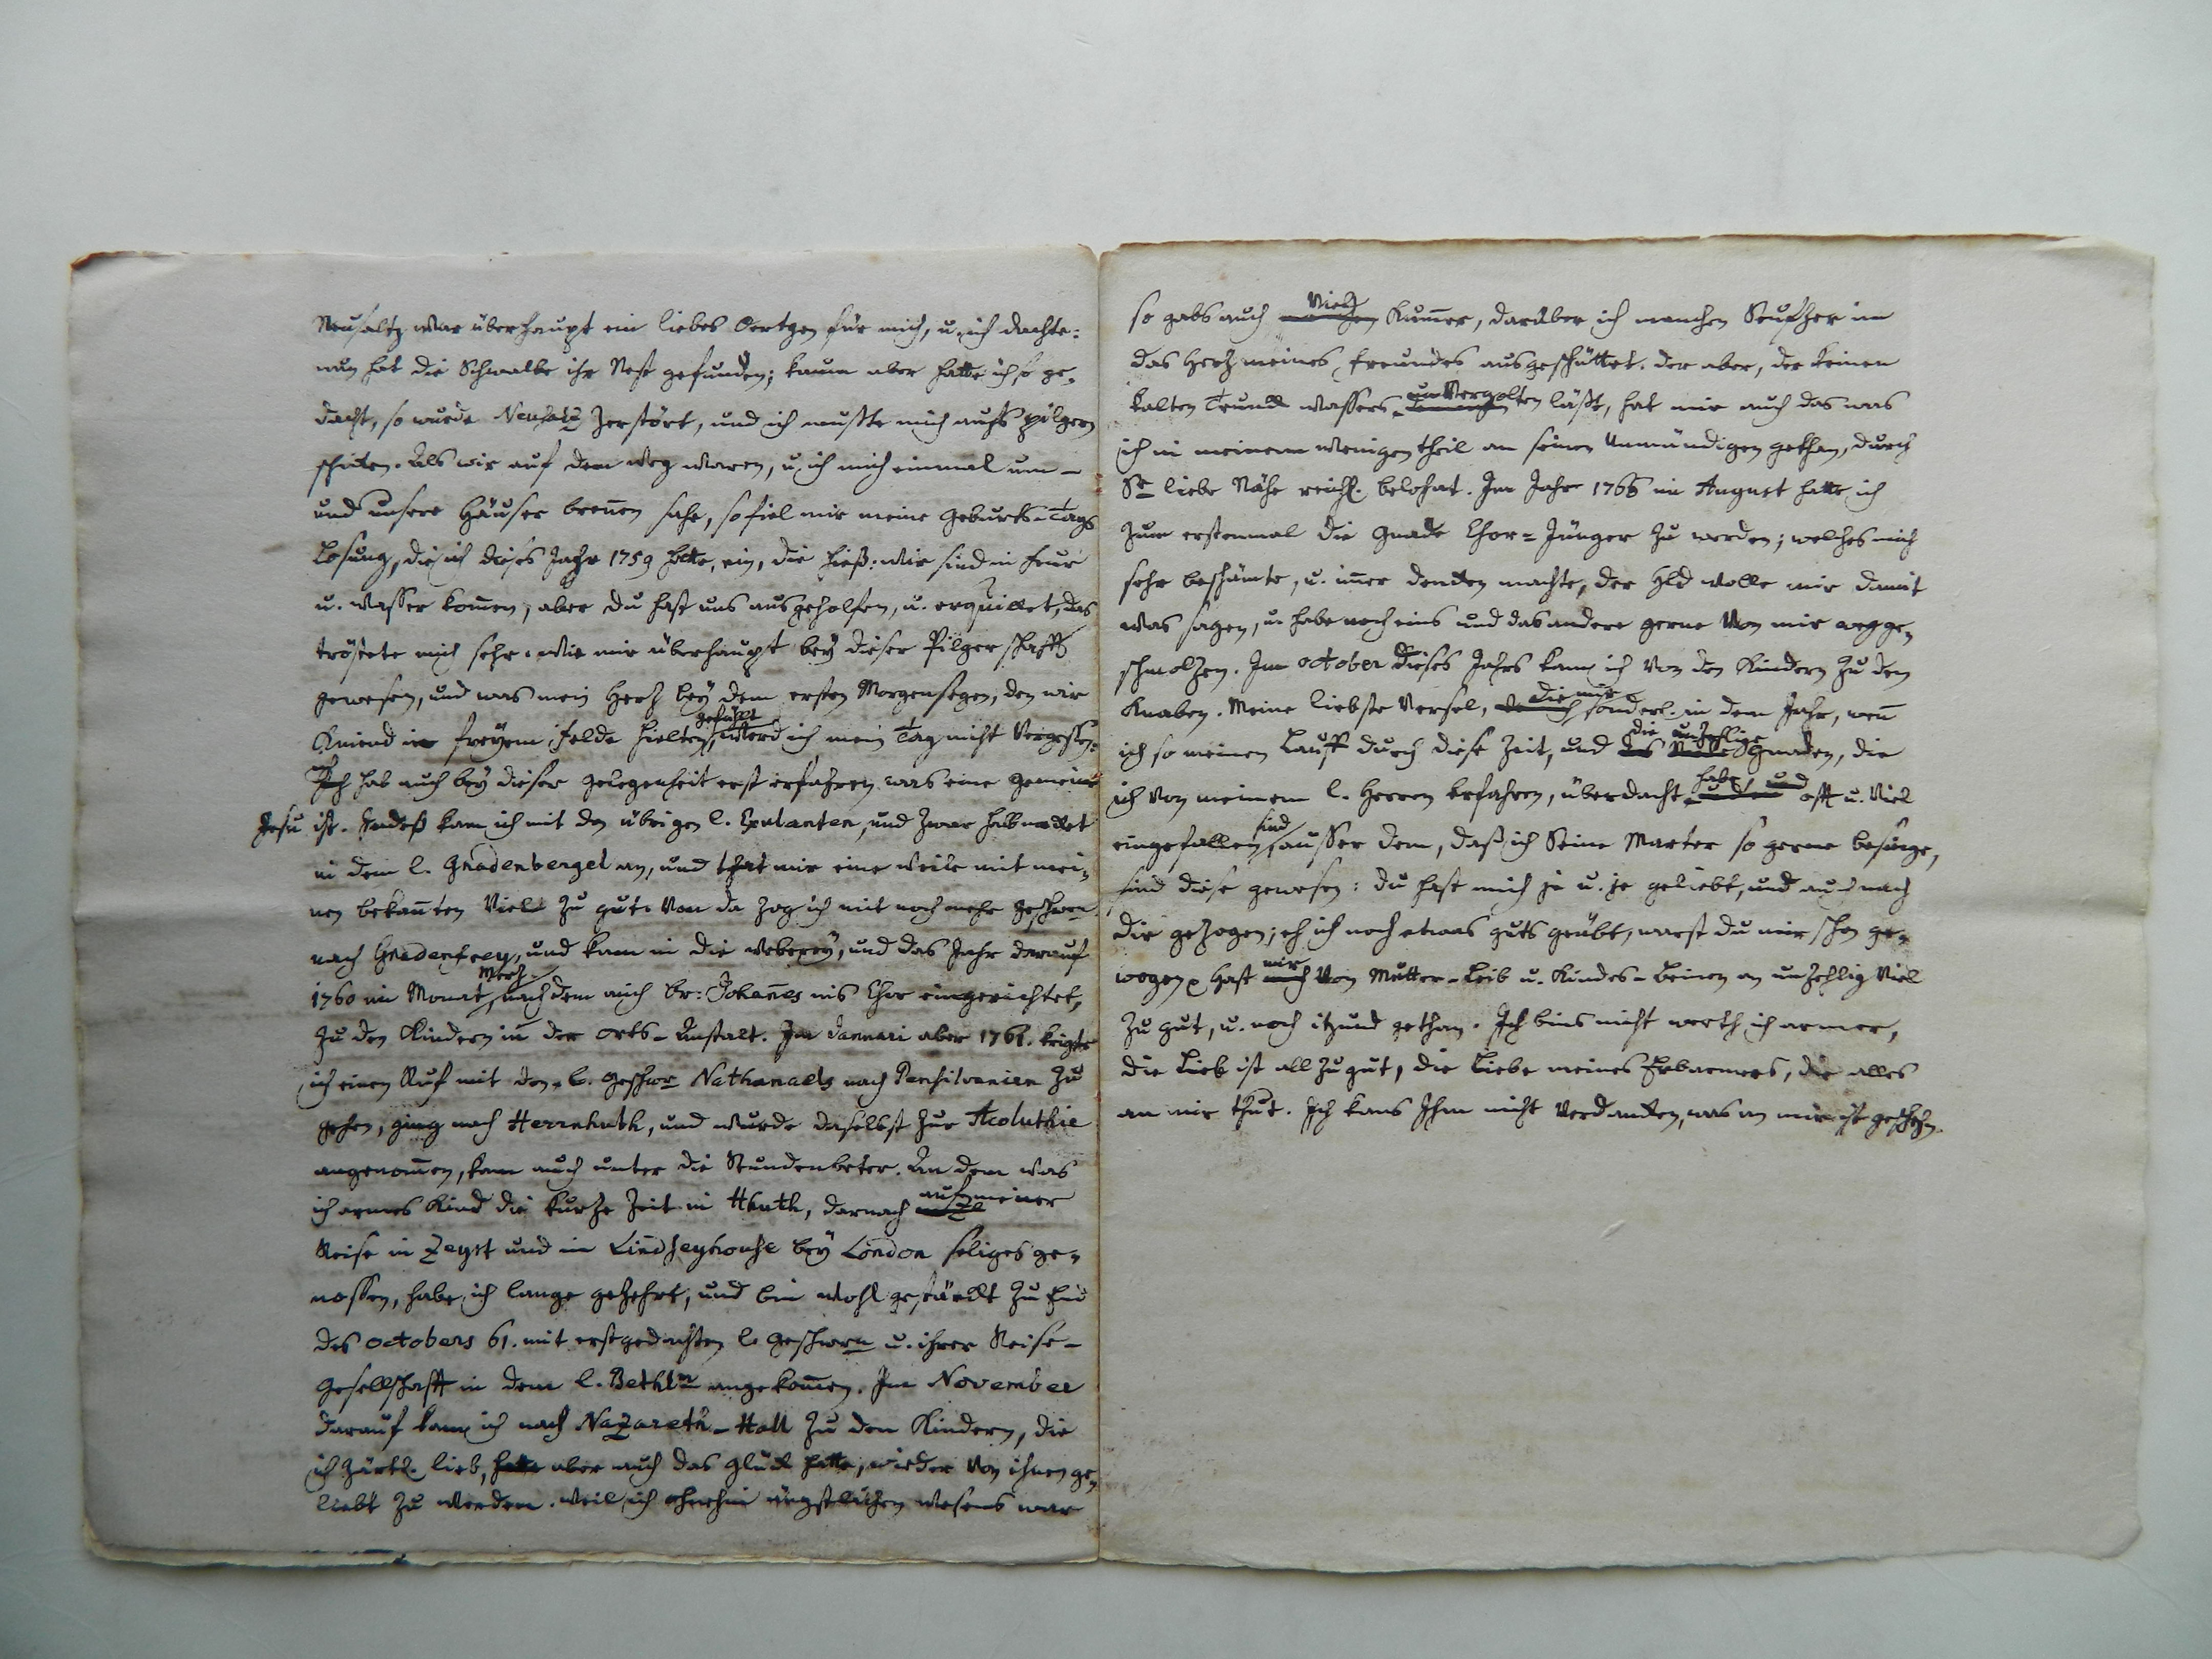 Neusaltz war überhaupt ein liebes Oertgen für mich, u. ich dachte:
nun hat die Schwalbe ihr Nest gefunden; kaum aber hatte ich so ge-
dacht, so wurde Neusalz zerstört, und ich mußte mich aufs pilgern
schicken. Als wir auf dem Weg waren, u. ich mich einmal um-
und unsere Häuser brennen sahe, so fiel mir meine Geburts-Tags
Losung, die ich dieses Jahr 1759 hatte, ein, die hieß: Wir sind in Feuer
u. Wasser kom̄en, aber du hast uns ausgeholfen, u. erquicket, das
tröstete mich sehr. Wie mir überhaupt bey dieser Pilgerschafft
gewesen, und was mein Herz bey dem ersten Morgensegen, den wir
Kniend in freyem Felde hielten, gefühlt werd ich mein Tag nicht vergessen.
Ich hab auch bey dieser gelegenheit erst erfahren was eine Gemeine
Jesu ist. Indeß kam ich mit den übrigen l. Exulanten, und zwar halb nacket
in dem l. Gnadenbergel an, und that mir eine Weile mit mei-
nen bekan̄ten viel zu gut. Von da zog ich mit noch mehr Geschwrn
nach Gnadenfrey, und kam in die Weberey, und das Jahr darauf
1760 im Monat Merz nachdem auch Br: Johan̄es ins Chor eingerichtet,
zu den Kindern in der Orts-Anstalt. Im Januari aber 1761. kriegte
ich einen Ruf mit den l. Geschwr Nathanaels nach Pensilvanien zu
gehen, ging nach Herrnhuth, und wurde daselbst zur Acoluthie
angenom̄en, kam auch unter die Stundenbeter. An dem was
ich armes Kind die kurze Zeit in Hhuth, darnach auf meiner
Reise in Zeyst und in Lindseyhouse bey London seliges ge-
nossen, habe ich lange gezehrt, und bin wohl gestärckt zu End
des Octobers 61. mit erstgedachten l. Geschwrn u. ihrer Reise-
Gesellschafft in dem l. Bethlm angekom̄en. Im November
darauf kam ich nach Nazareth-Hall zu den Kindern, die
ich zärtl. lieb, hatte aber auch das Glück hatte, wieder von ihnen ge-
liebt zu werden. Weil ich ohnehin ängstlichen Wesens war
so gabs auch viel Kum̄er, darüber ich manchen Seufzer in
das Herz meines Freundes ausgeschüttet. Der aber, der keinen
kalten Trunck Wassers unvergolten läßt, hat mir auch das was
ich in meinem Wenigen theil an seinen Unmündigen gethan, durch
Se liebe Nähe reichl. belohnt. Im Jahr 1766 im August hatte ich
zum erstenmal die Gnade Chor-Jünger zu werden; welches mich
sehr beschämte, u. im̄er dencken machte, der Hld wolle mir damit
was sagen, u. habe noch eins und das andere gerne von mir wegge-
schmolzen. Im October dieses Jahrs kam ich von den Kindern zu den
Knaben. Meine liebste Versel, die mir sonderl. in dem Jahr, wen̄
ich so meinen Lauff durch diese Zeit, und die unzehlige Gnaden, die
ich von meinem l. Herrn erfahren, überdacht habe, und offt u. viel
eingefallen sind, ausser dem, daß ich Seine Marter so gerne besinge,
sind diese gewesen: Du hast mich je u. je geliebt, und auch nach
dir gezogen; eh ich noch etwas guts geübt, warst du mir schon ge-
wogen. Hast mir von Mutter-Leib u. Kindes-Beinen an unzehlig viel
zu gut, u. noch itzund gethan. Ich bins nicht werth ich armer,
die Lieb ist all zu gut, die Liebe meines Erbarmers, die alles
an mir thut. Ich kans Ihm nicht verdancken, was an mir ist geschehn.